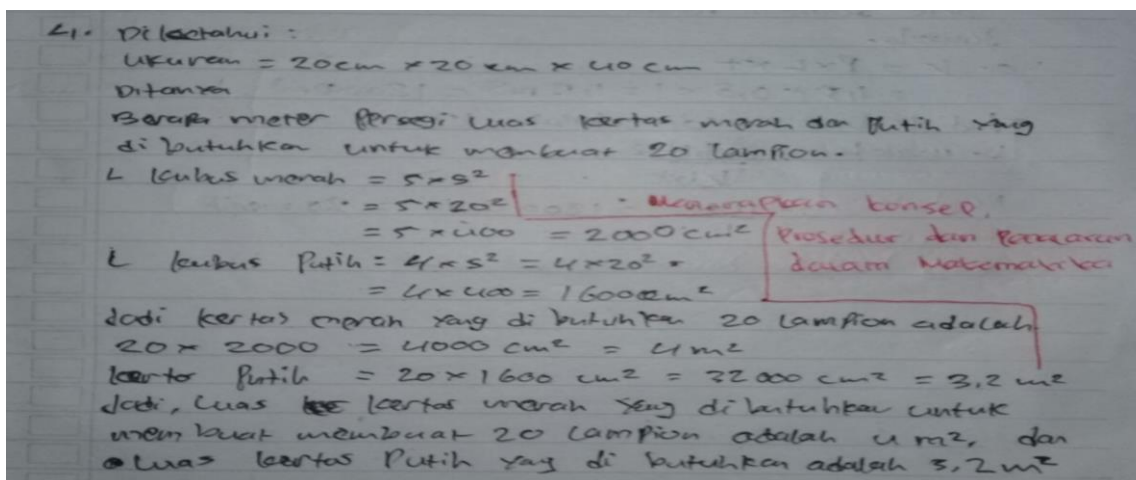 4. Diketahui :
Ukuran = 20cm × 20 cm × 40 cm
Ditanya
Berapa meter Persegi luas kertas merah dan Putih yang
di butuhkan untuk membuat 20 lampion.
L kubus merah = 5 × s²
= 5 × 20²
= 5 × 400 = 2000 cm²
Menerapkan konsep,
Prosedur dan Penalaran
dalam Matematika
L kubus Putih = 4 × s² = 4 × 20²
= 4 × 400 = 1600 cm²
Jadi kertas merah yang di butuhkan 20 lampion adalah
20 × 2000 = 4000 cm² = 4 m²
kertas Putih = 20 × 1600 cm² = 32000 cm² = 3,2 m²
Jadi, luas kertas merah yang di butuhkan untuk
membuat membuat 20 lampion adalah 4 m², dan
luas kertas Putih yag di butuhkan adalah 3,2 m²